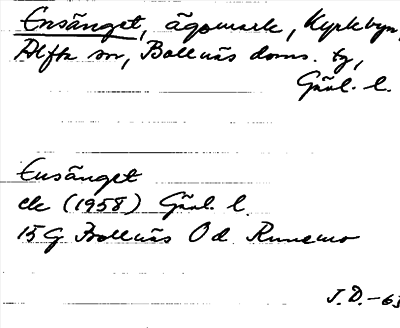 Ensänget, ägomark, Kyrkbyn,
Alfta sn, Bollnäs doms. tg,
Gävl. l.
Ensänget
ek (1958) Gävl. l.
15G Bollnäs Od Runemo
J.D.-63